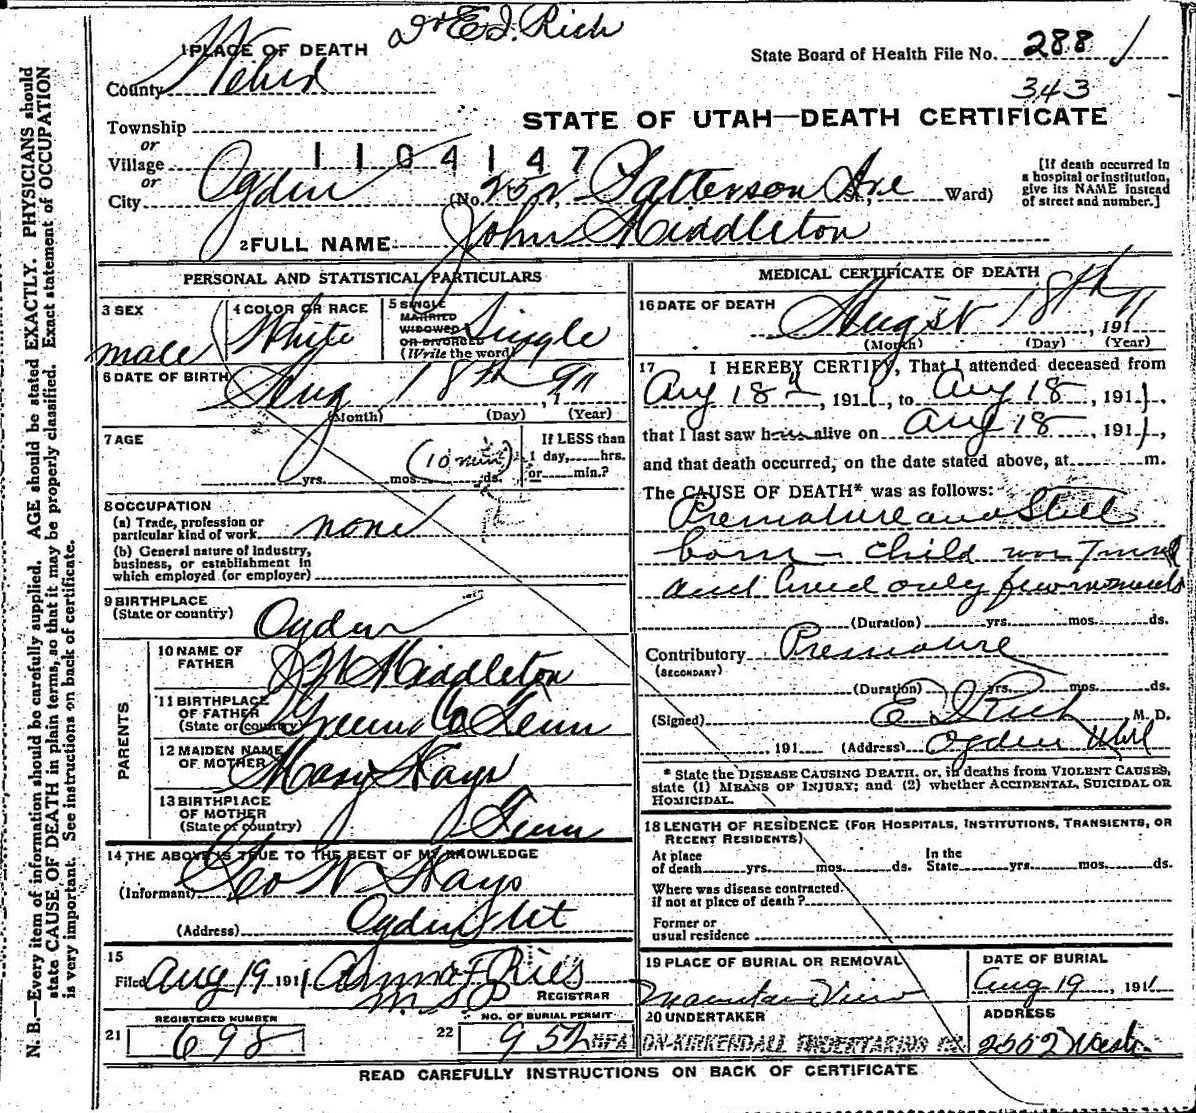 Dr E. I. Rich
1 PLACE OF DEATH
State Board of Health File No. 288
343
County Weber
STATE OF UTAH—DEATH CERTIFICATE
Township
or
Village
1104147
or
City Ogden (No. 252 Patterson Ave St., Ward)
[If death occurred in
a hospital or institution,
give its NAME instead
of street and number.]
2 FULL NAME John Middleton
PERSONAL AND STATISTICAL PARTICULARS
3 SEX male
4 COLOR OR RACE White
5 SINGLE
MARRIED
WIDOWED
OR DIVORCED
(Write the word) Single
6 DATE OF BIRTH Aug 18th, 911
(Month) (Day) (Year)
7 AGE
(10 min)
yrs. mos. ds.
If LESS than
1 day, hrs.
or min.?
8 OCCUPATION
(a) Trade, profession or
particular kind of work none
(b) General nature of industry,
business, or establishment in
which employed (or employer)
9 BIRTHPLACE
(State or country) Ogden
PARENTS
10 NAME OF
FATHER J W Middleton
11 BIRTHPLACE
OF FATHER
(State or country) Green Co Tenn
12 MAIDEN NAME
OF MOTHER Mary Hays
13 BIRTHPLACE
OF MOTHER
(State or country) Tenn
14 THE ABOVE IS TRUE TO THE BEST OF MY KNOWLEDGE
(Informant) Geo W Hays
(Address) Ogden Ut
15
Filed Aug 19 1911 Anna F Ries
REGISTRAR
21 REGISTERED NUMBER 698
22 NO. OF BURIAL PERMIT 952
MEDICAL CERTIFICATE OF DEATH
16 DATE OF DEATH
August 18th, 1911
(Month) (Day) (Year)
17 I HEREBY CERTIFY, That I attended deceased from
Aug 18th, 1911, to Aug 18, 1911,
that I last saw him alive on Aug 18, 1911,
and that death occurred, on the date stated above, at m.
The CAUSE OF DEATH* was as follows:
Premature and Still
born — child was 7 mos
and lived only few moments
(Duration) yrs. mos. ds.
Contributory Premature
(SECONDARY)
(Duration) yrs. mos. ds.
(Signed) E I Rich M. D.
, 191 (Address) Ogden Utah
* State the DISEASE CAUSING DEATH, or, in deaths from VIOLENT CAUSES,
state (1) MEANS OF INJURY; and (2) whether ACCIDENTAL, SUICIDAL OR
HOMICIDAL.
18 LENGTH OF RESIDENCE (FOR HOSPITALS, INSTITUTIONS, TRANSIENTS, OR
RECENT RESIDENTS)
At place
of death yrs. mos. ds.
In the
State yrs. mos. ds.
Where was disease contracted
if not at place of death?
Former or
usual residence
19 PLACE OF BURIAL OR REMOVAL
Mountain View
DATE OF BURIAL
Aug 19, 1911
20 UNDERTAKER
KIRKENDALL UNDERTAKING CO.
ADDRESS
2552 Wash.
READ CAREFULLY INSTRUCTIONS ON BACK OF CERTIFICATE
N. B.—Every item of information should be carefully supplied. AGE should be stated EXACTLY. PHYSICIANS should
state CAUSE OF DEATH in plain terms, so that it may be properly classified. Exact statement of OCCUPATION
is very important. See instructions on back of certificate.